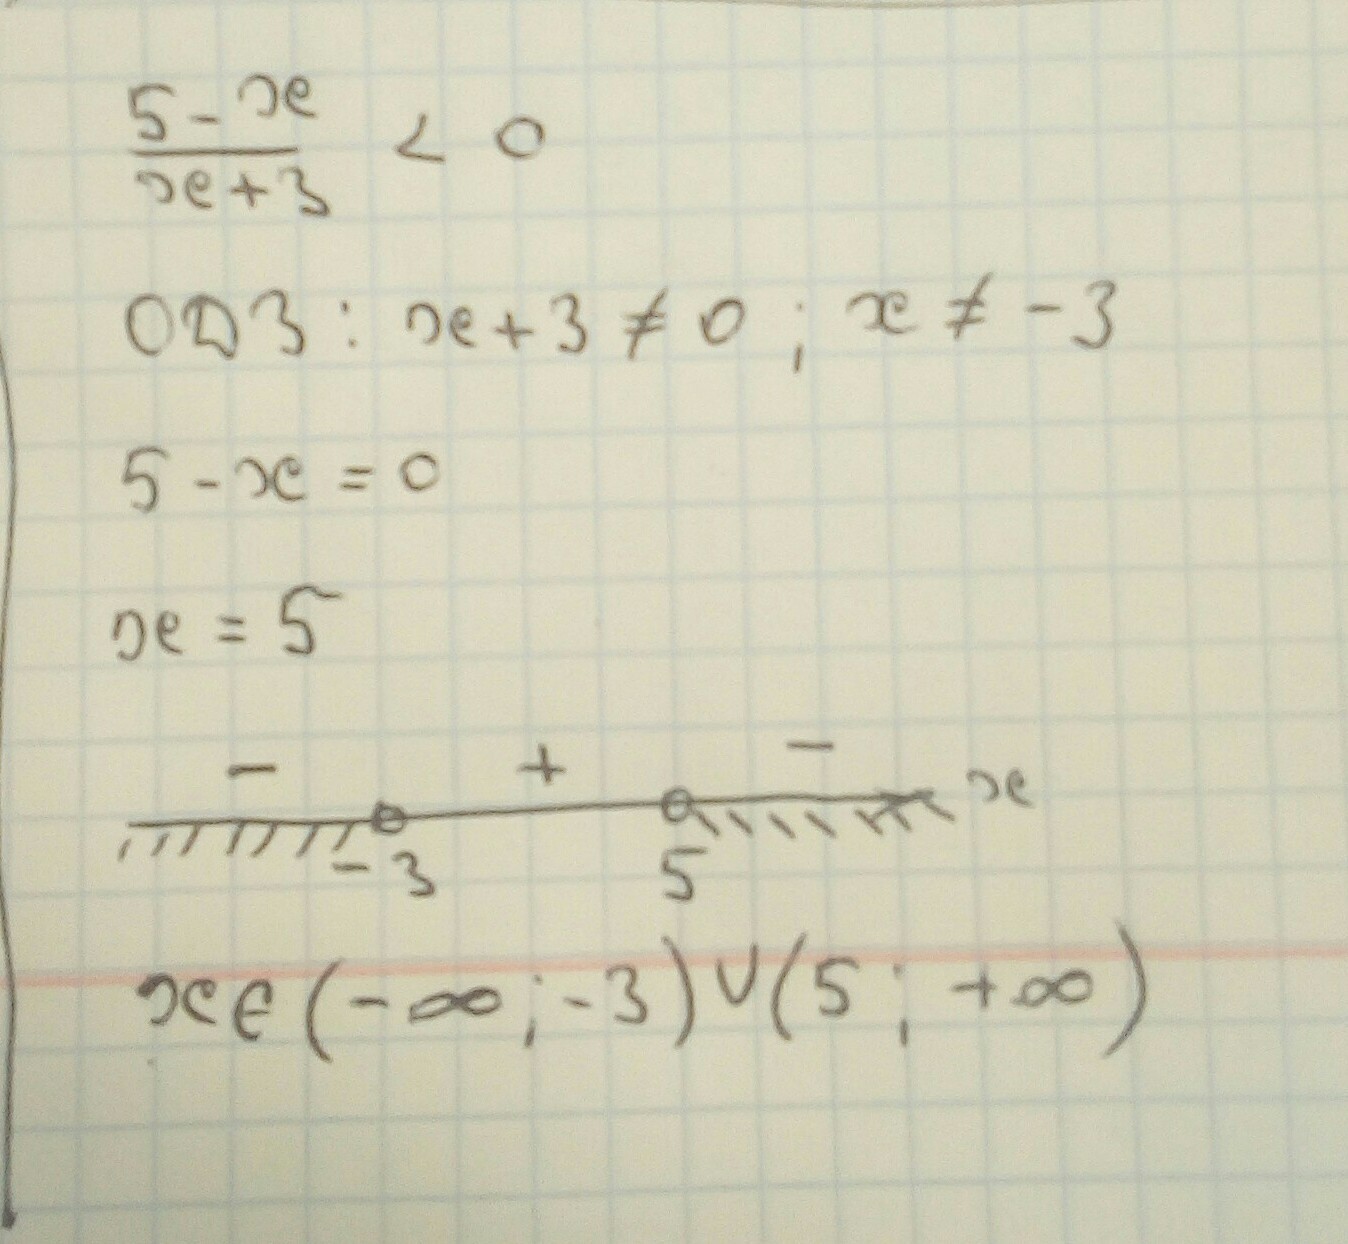 (5 - x)/(x + 3) < 0
ОДЗ: x + 3 ≠ 0 ; x ≠ - 3
5 - x = 0
x = 5
- + -
-3 5 x
x ∈ (- ∞ ; -3) ∪ (5 ; + ∞)